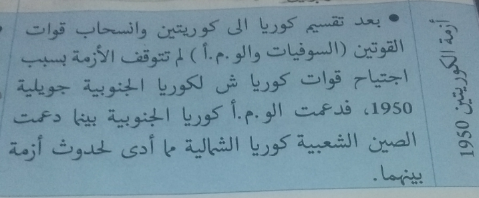 أزمة الكوريتين 1950
• بعد تقسيم كوريا الى كوريتين وانسحاب قوات
القوتين (السوفيات والو.م.أ) لم تتوقف الأزمة بسبب
اجتياح قوات كوريا ش لكوريا الجنوبية جويلية
1950، فدعمت الو.م.أ كوريا الجنوبية بينما دعمت
الصين الشعبية كوريا الشمالية مما أدى لحدوث أزمة
بينهما.